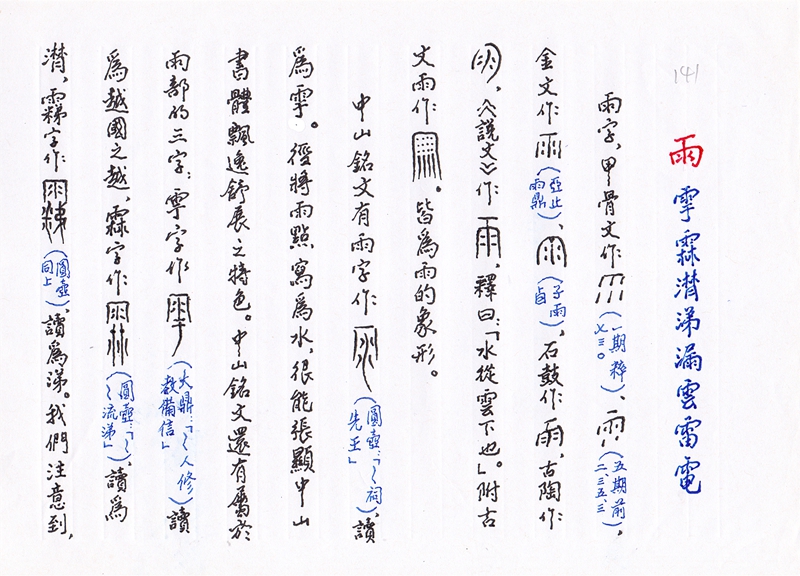 141
雨 雩霖潸涕漏雲雷電
雨字，甲骨文作（一期粹七三〇）、（五期前二、三五、三），
金文作（亞止雨鼎）、（子雨卣），石鼓作雨，古陶作
，《說文》作雨，釋曰：「水從雲下也」。附古
文雨作。皆為雨的象形。
中山銘文有雨字作（圓壺：「～祠先王」，讀
為雩。徑將雨點寫為水，很能張顯中山
書體飄逸舒展之特色。中山銘文還有屬於
雨部的三字：雩字作（大鼎：「～人修教備信」）讀
為越國之越，霖字作（圓壺：「～～流涕」），讀為
潸，字作（圓壺同上），讀為涕。我們注意到，